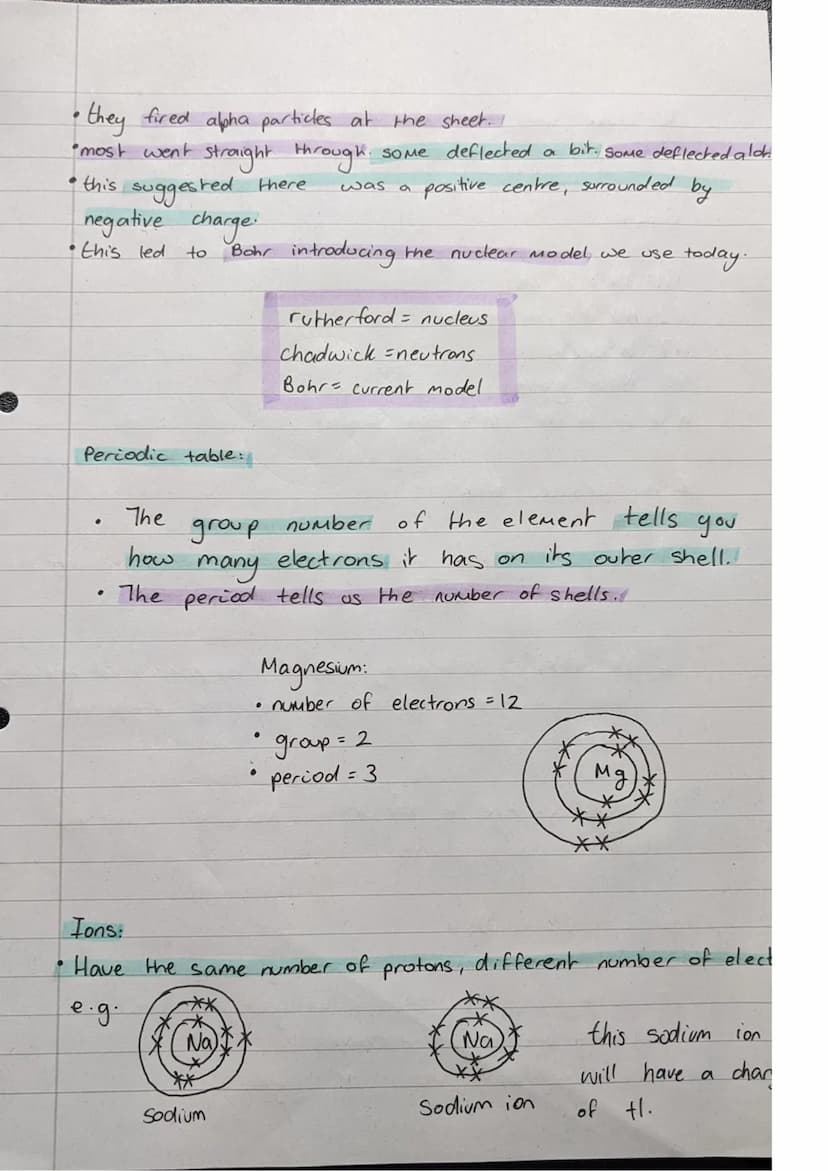 • they fired alpha particles at the sheet.
• most went straight through. some deflected a bit. some deflected a lot
• this suggested there was a positive centre, surrounded by
negative charge.
• this led to Bohr introducing the nuclear model we use today.
rutherford = nucleus
chadwick = neutrons
Bohr = current model
Periodic table:
• The group number of the element tells you
how many electrons it has on its outer shell.
• The period tells us the number of shells.
Magnesium:
• number of electrons = 12
• group = 2
• period = 3
Mg
Ions:
• Have the same number of protons, different number of elect
e.g.
Na
Na
this sodium ion
will have a char
of +1.
Sodium
Sodium ion